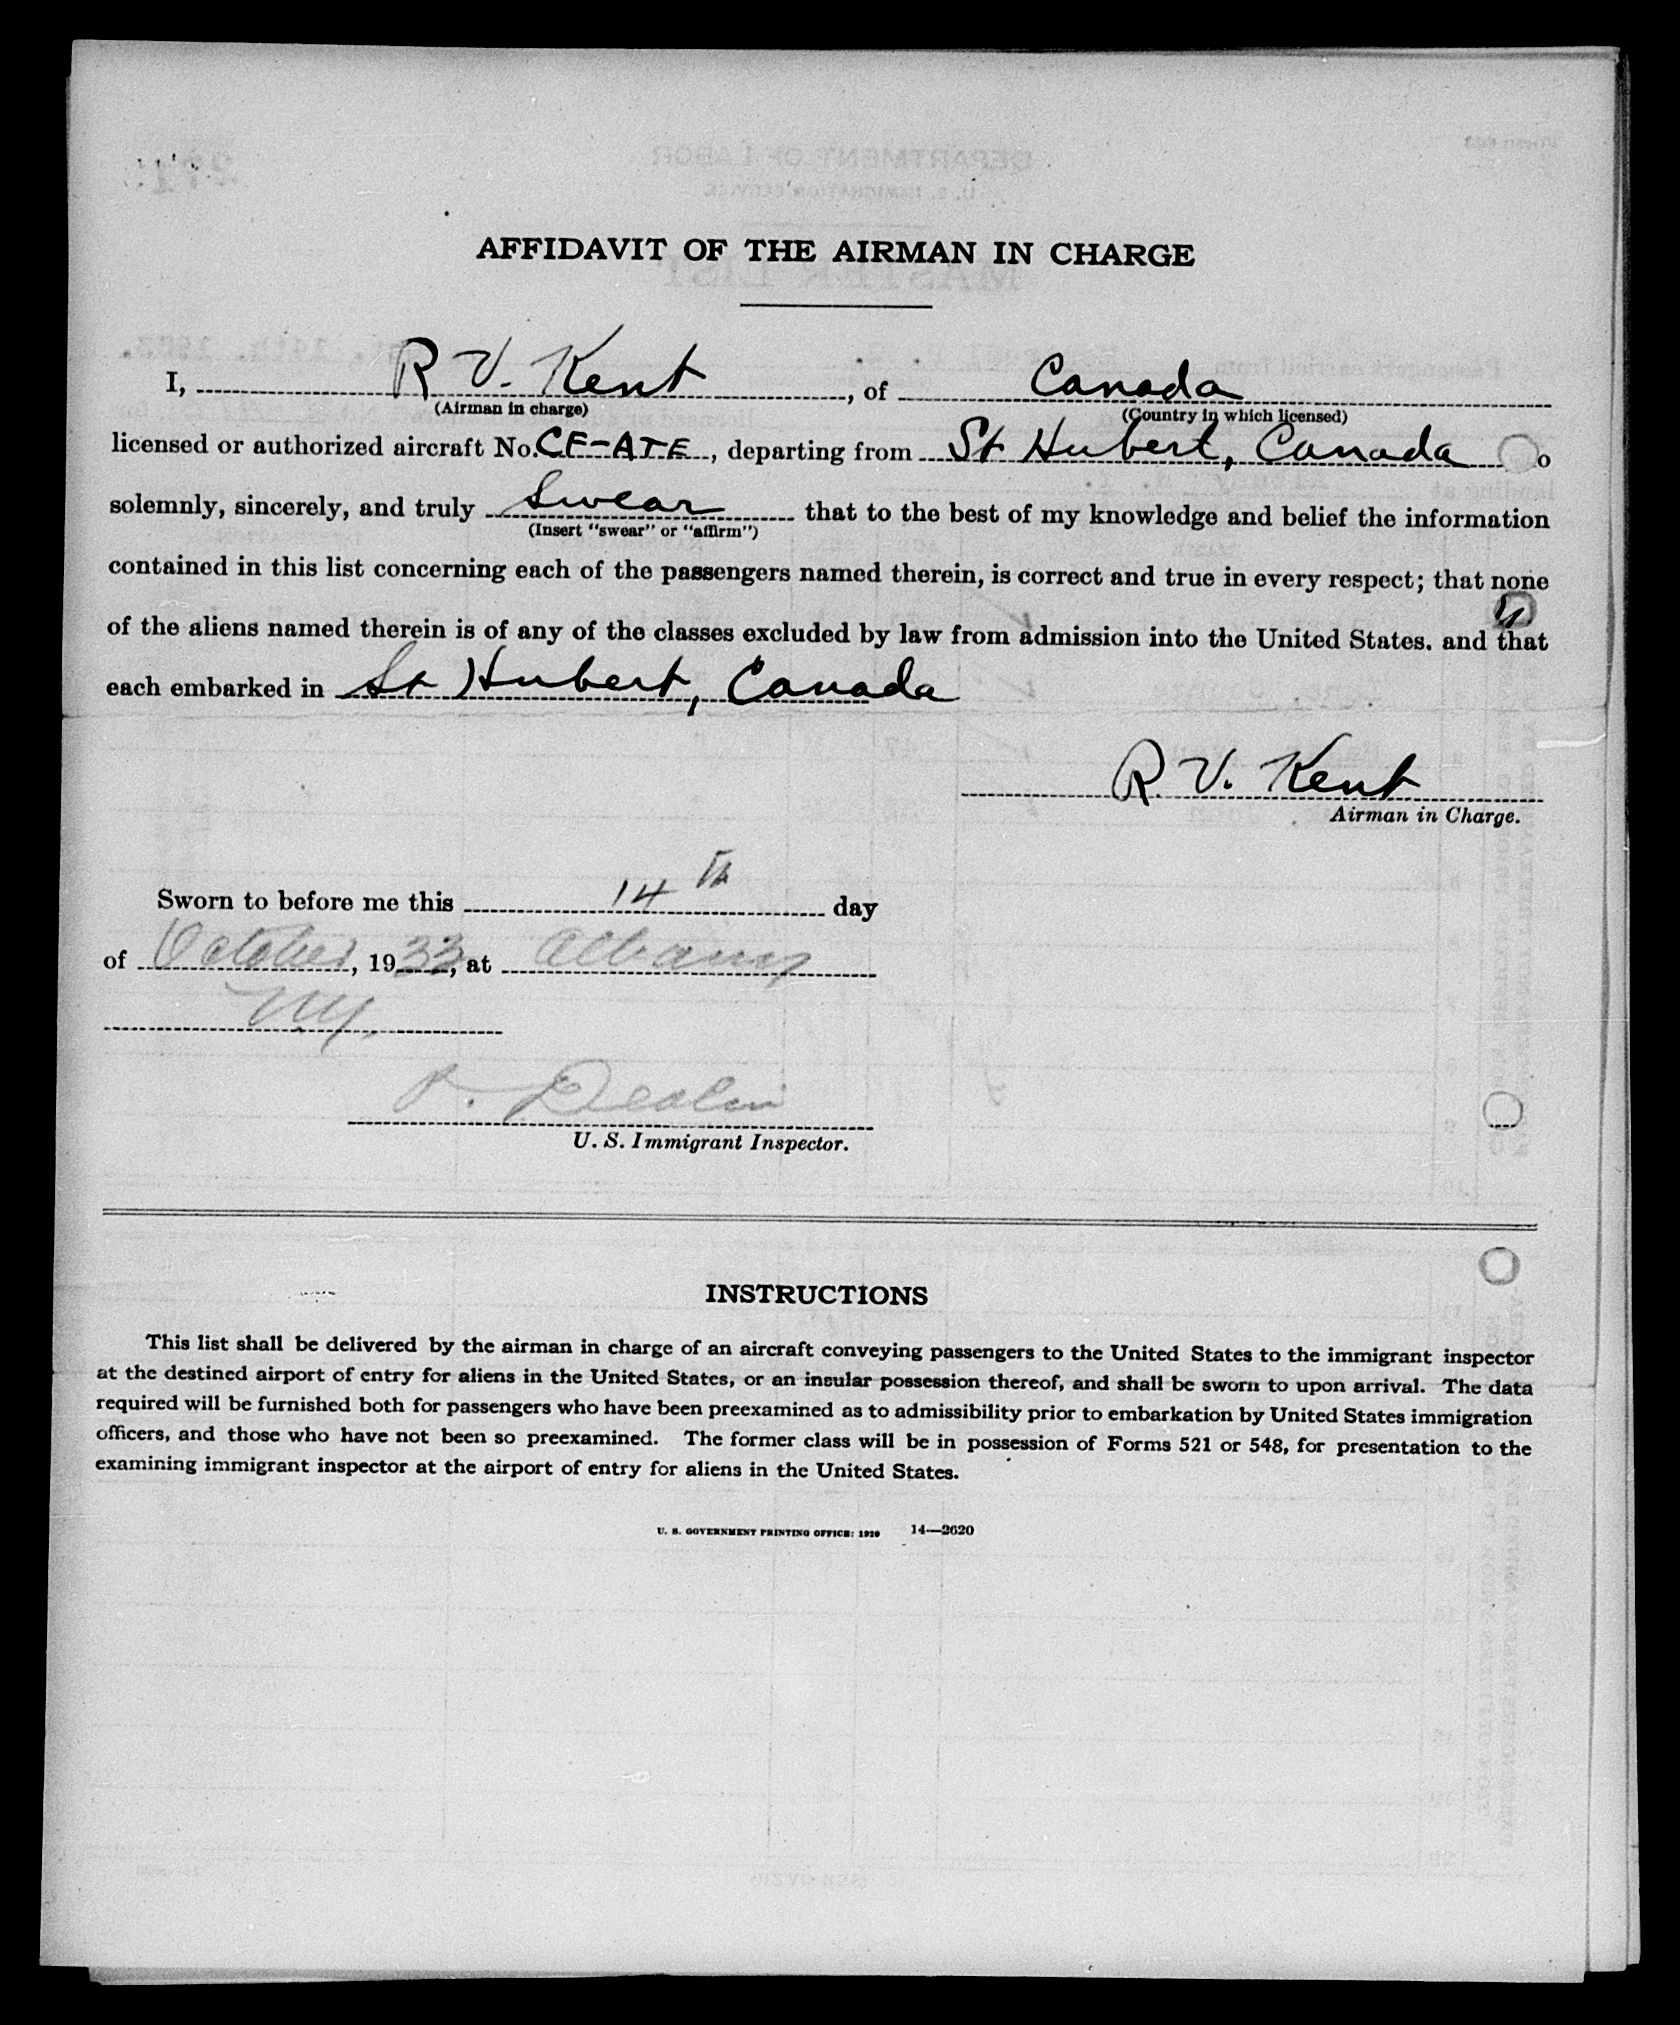 AFFIDAVIT OF THE AIRMAN IN CHARGE
I, R V. Kent, of Canada
(Airman in charge) (Country in which licensed)
licensed or authorized aircraft No. CF-ATE, departing from St Hubert, Canada o
solemnly, sincerely, and truly Swear that to the best of my knowledge and belief the information
(Insert "swear" or "affirm")
contained in this list concerning each of the passengers named therein, is correct and true in every respect; that none
of the aliens named therein is of any of the classes excluded by law from admission into the United States. and that
each embarked in St Hubert, Canada
R. V. Kent
Airman in Charge.
Sworn to before me this 14th day
of October, 1933, at Albany
NY.
U. S. Immigrant Inspector.
INSTRUCTIONS
This list shall be delivered by the airman in charge of an aircraft conveying passengers to the United States to the immigrant inspector
at the destined airport of entry for aliens in the United States, or an insular possession thereof, and shall be sworn to upon arrival. The data
required will be furnished both for passengers who have been preexamined as to admissibility prior to embarkation by United States immigration
officers, and those who have not been so preexamined. The former class will be in possession of Forms 521 or 548, for presentation to the
examining immigrant inspector at the airport of entry for aliens in the United States.
U. S. GOVERNMENT PRINTING OFFICE: 1929 14—2620